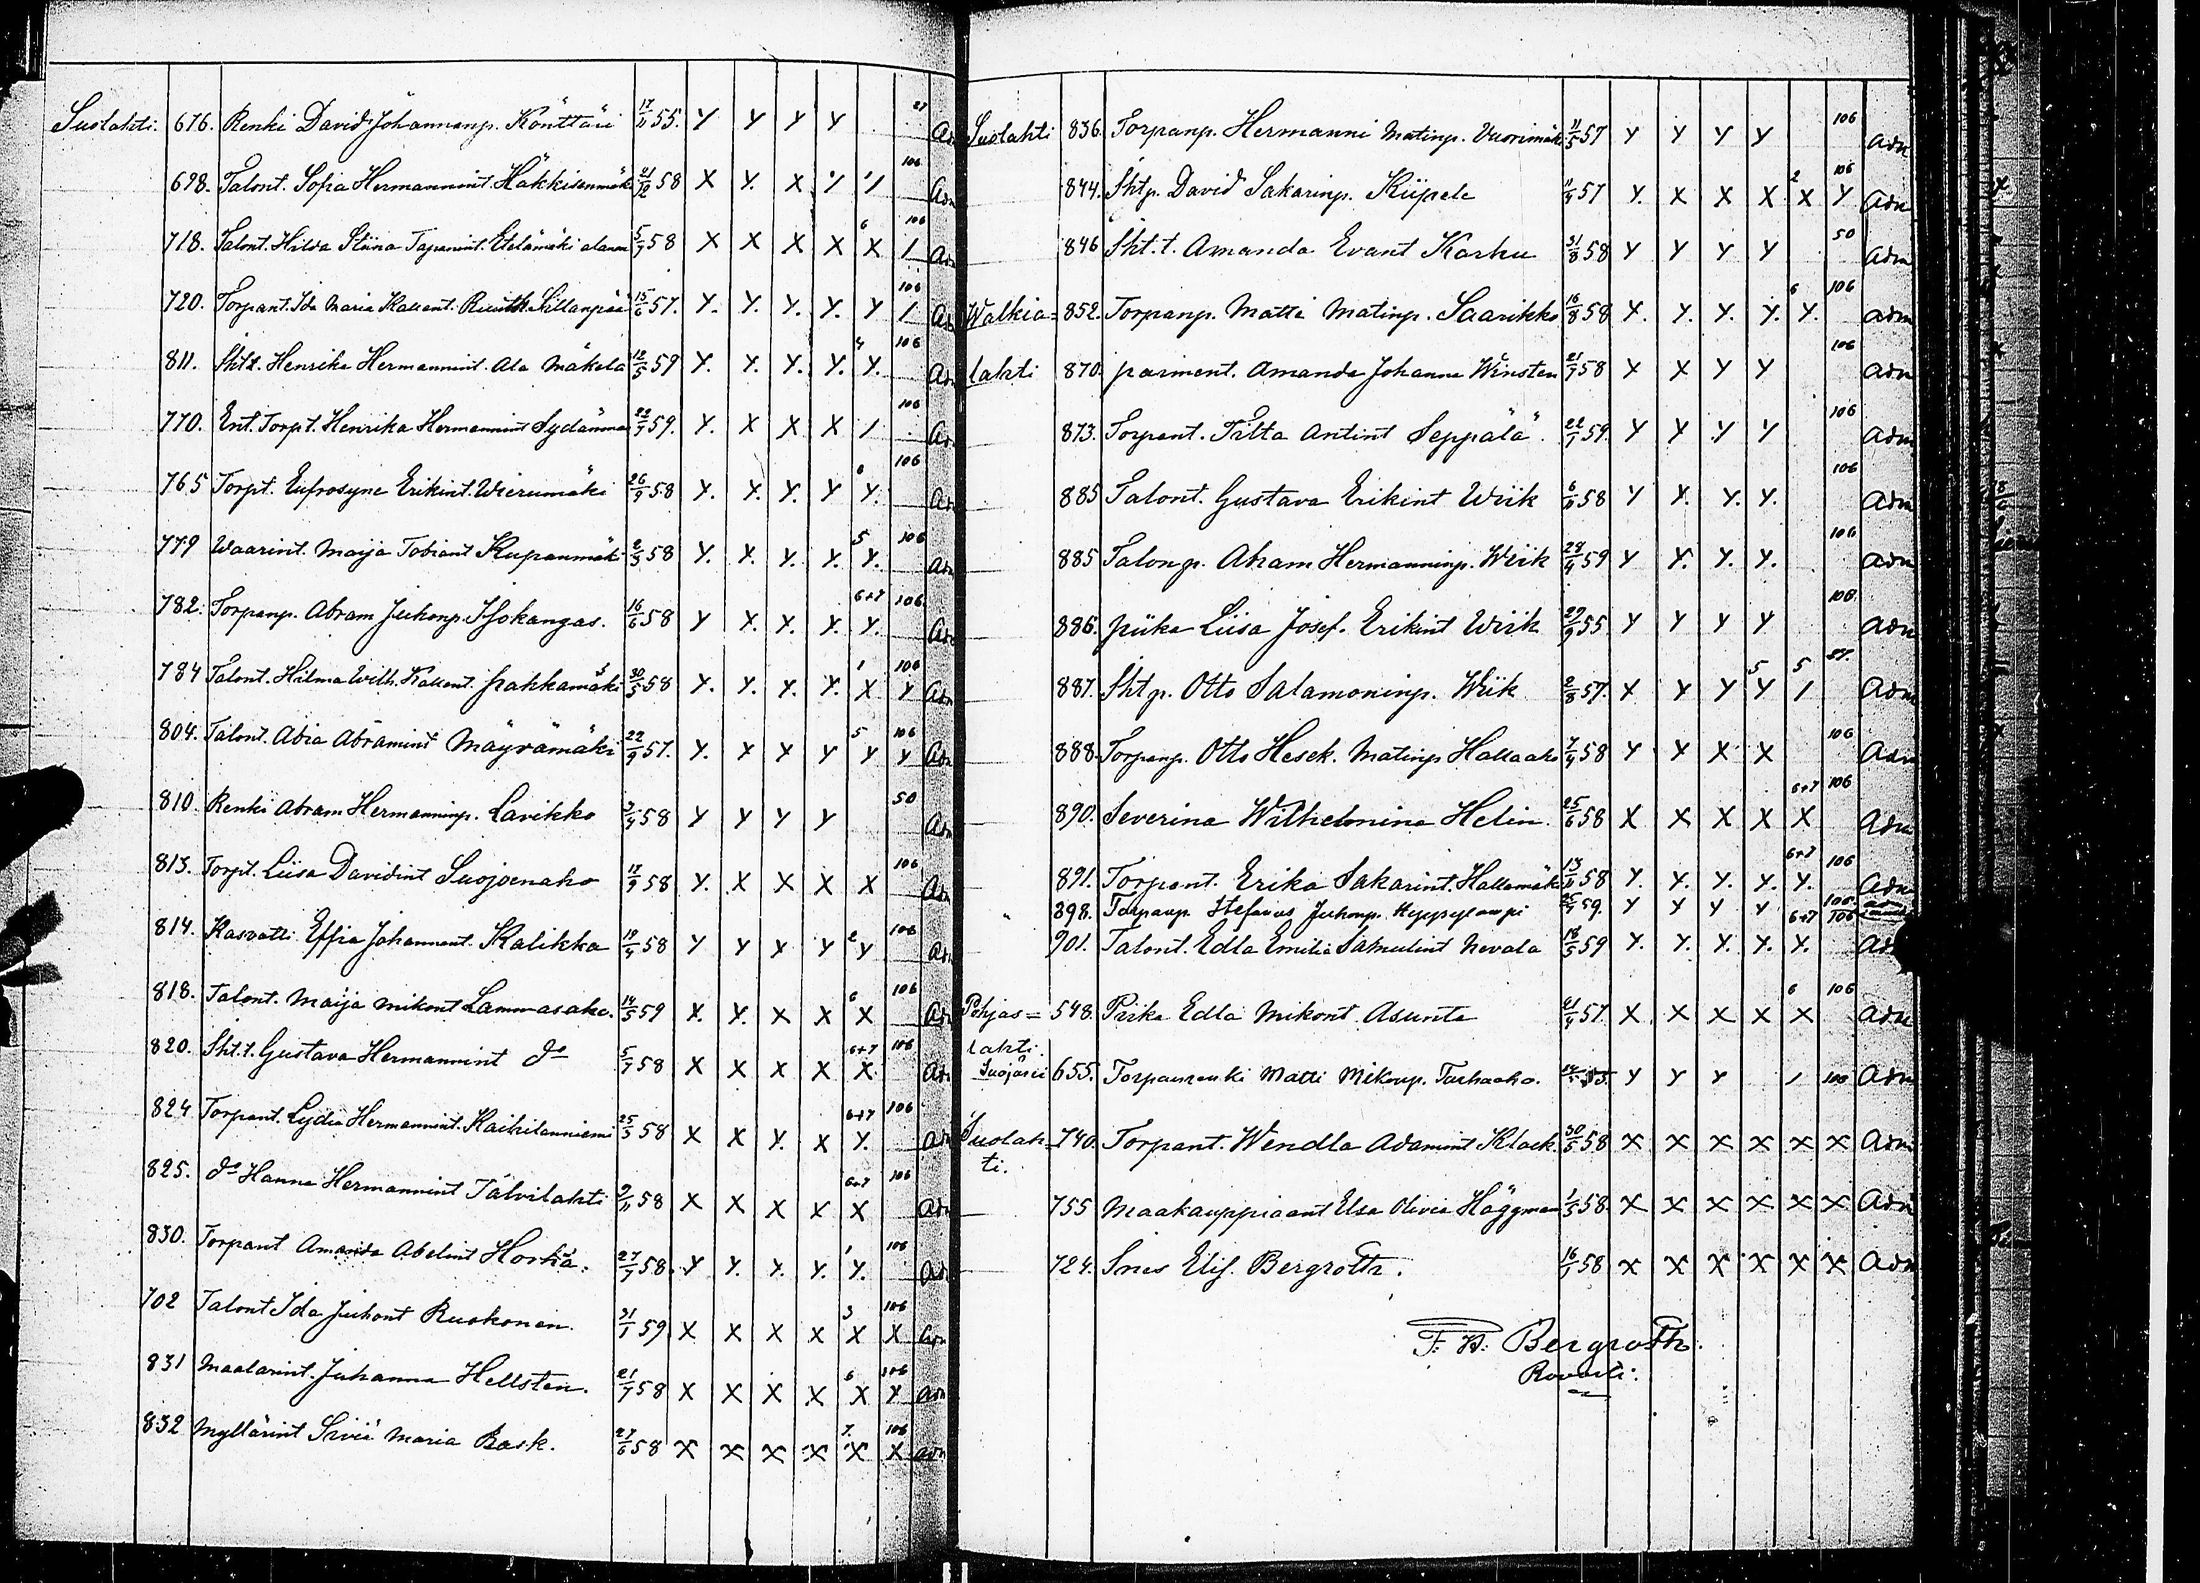 Suolahti. 676. Renki David Johannanp. Könttäri 17/11 55. Y Y Y Y 27 Adm
698. Talont. Sofia Hermannint. Häkkisenmäki 21/12 58 X Y. X Y Y 106 Adm
718. Talont. Hilda Stiina Tapanint. Etelämäki alanen 5/7 58 X X X X X 6 1 106 Adm
720. Torpant. Ida Maria Kallent. Sillanpää 15/6 57. Y. Y. Y. Y. Y 1 106 Adm
811. Sht.t. Henrika Hermannint. Ala Mäkelä 12/5 59 Y. Y. Y. Y. Y. 4 106 Adm
770. Ent. Torpt. Henrika Hermannint Sydänmaa 22/7 59. Y. X X X 1 106 Adm
765 Torpt. Eufrosyne Erikint. Wierumäki 26/9 58 Y. Y. Y. Y Y. 6 106 Adm
779 Waarint. Maija Tobiant Kupanmäki 2/3 58 Y. X. Y. Y. Y. 5 106 Adm
782. Torpanp. Abram Juhonp. Isokangas. 16/6 58 Y X. X. Y. Y. 6+7 106 Adm
784 Talont. Hilma Wilh. Kallent. Pakkamäki 30/5 58 Y. Y. Y. Y. X 1 Y 106 Adm
804. Talont. Abia Abramint Mäyrämäki 22/9 57. Y. X X Y Y 5 Y 106 Adm
810. Renki Abram Hermanninp. Lavikko 3/4 58 Y Y Y Y 50 Adm
813. Torpt. Liisa Davidint Suojoenaho 17/9 58 Y. X X X X 106 Adm
814. Kasvatti Effia Johannant. Kalikka 19/4 58 Y Y X Y Y 2 106 Adm
818. Talont. Maija Mikont Lammasaho. 14/5 59 X. Y. X X X 6 106 Adm
820. Sht.t. Gustava Hermannint do 5/7 58 X X X X X 6+7 106 Adm
824 Torpant. Lydia Hermannint. Kaihilanniemi 25/3 58 X X Y. X Y. 6+7 106 Adm
825. do Hanna Hermannint Tälvilahti 9/11 58 X X X X X 6+7 106 Adm
830. Torpant Amanda Abelint Horkä. 27/7 58. Y Y. Y. Y. Y. 1 106 Adm
702 Talont Ida Juhont Ruokonen. 31/1 59 X X X X X 3 X 106 Adm
831 Maalarint. Juhanna Hellsten. 21/7 58 X X X X X 6 X 106 Adm
832 Myllärint Siviä Maria Bask. 27/6 58 X X X X X 7. X 106 Adm
Suolahti 836. Torpanp. Hermanni Matinp. Vuorimäki 11/5 57 Y Y Y Y 106 Adm
844. Shtp. David Sakarinp. Kiipele 11/4 57 Y. X X X X 2 Y 106 Adm
846 Sht.t. Amanda Evant Karhu 31/8 58 Y Y Y Y 50 Adm
Walkia= 852. Torpanp. Matti Matinp. Saarikko 16/8 58 Y. Y. Y. Y. Y. 6 106 Adm
lahti 870. parment. Amanda Johanna Winsten 21/7 58 X X Y Y 106 Adm
873. Torpant. Tilta Antint Seppälä. 22/1 59. Y Y Y Y 106 Adm
885 Talont. Gustava Erikint Wiik 6/11 58 Y Y. Y. Y. 106 Adm
885 Talonp. Abam Hermanninp. Wiik 28/4 59 Y Y. Y. Y. 106 Adm
886. piika Liisa Josef. Erikint Wiik 29/9 55 Y Y Y Y 106. Adm
887. Shtp. Otto Salamoninp. Wiik 2/8 57. X Y Y Y 5 1 5 57. Adm
888. Torpanp. Otto Hesek. Matinp Hallaaho 7/4 58 Y Y X X 106 Adm
890. Severina Wilhelmina Helin. 25/6 58 X X X X X 6+7 106 Adm
891. Torpant. Erika Sakarint. Hallamäki 13/11 58 Y. Y. Y. Y. Y. 6+7 106 Adm
898. Torpanp. Stefanus Juhonp. Hyppylampi 25/7 59. Y Y Y Y 106.
901. Talont. Edla Emilia Samulint Nevala 18/5 59 Y. Y. Y. Y. Y. 6+7 106 Adm
Pohjas= 548. Piika Edla Mikont Asunta 21/4 57. X X X X X 6 106 Adm
lahti.
Suojärvi 655. Torpanrenki Matti Mikonp. Tarhaaho. 55. Y Y Y 1 106 Adm
Suolah= 740. Torpant. Wendla Adamint Klack. 30/5 58 X X X X X X Adm
ti.
755 Maakauppiaant Elsa Olivia Häggman 1/3 58. X X X X X X Adm
724. Snes Elis. Bergroth. 16/1 58 X X X X X X Adm
F. W. Bergroth.
Rovasti.